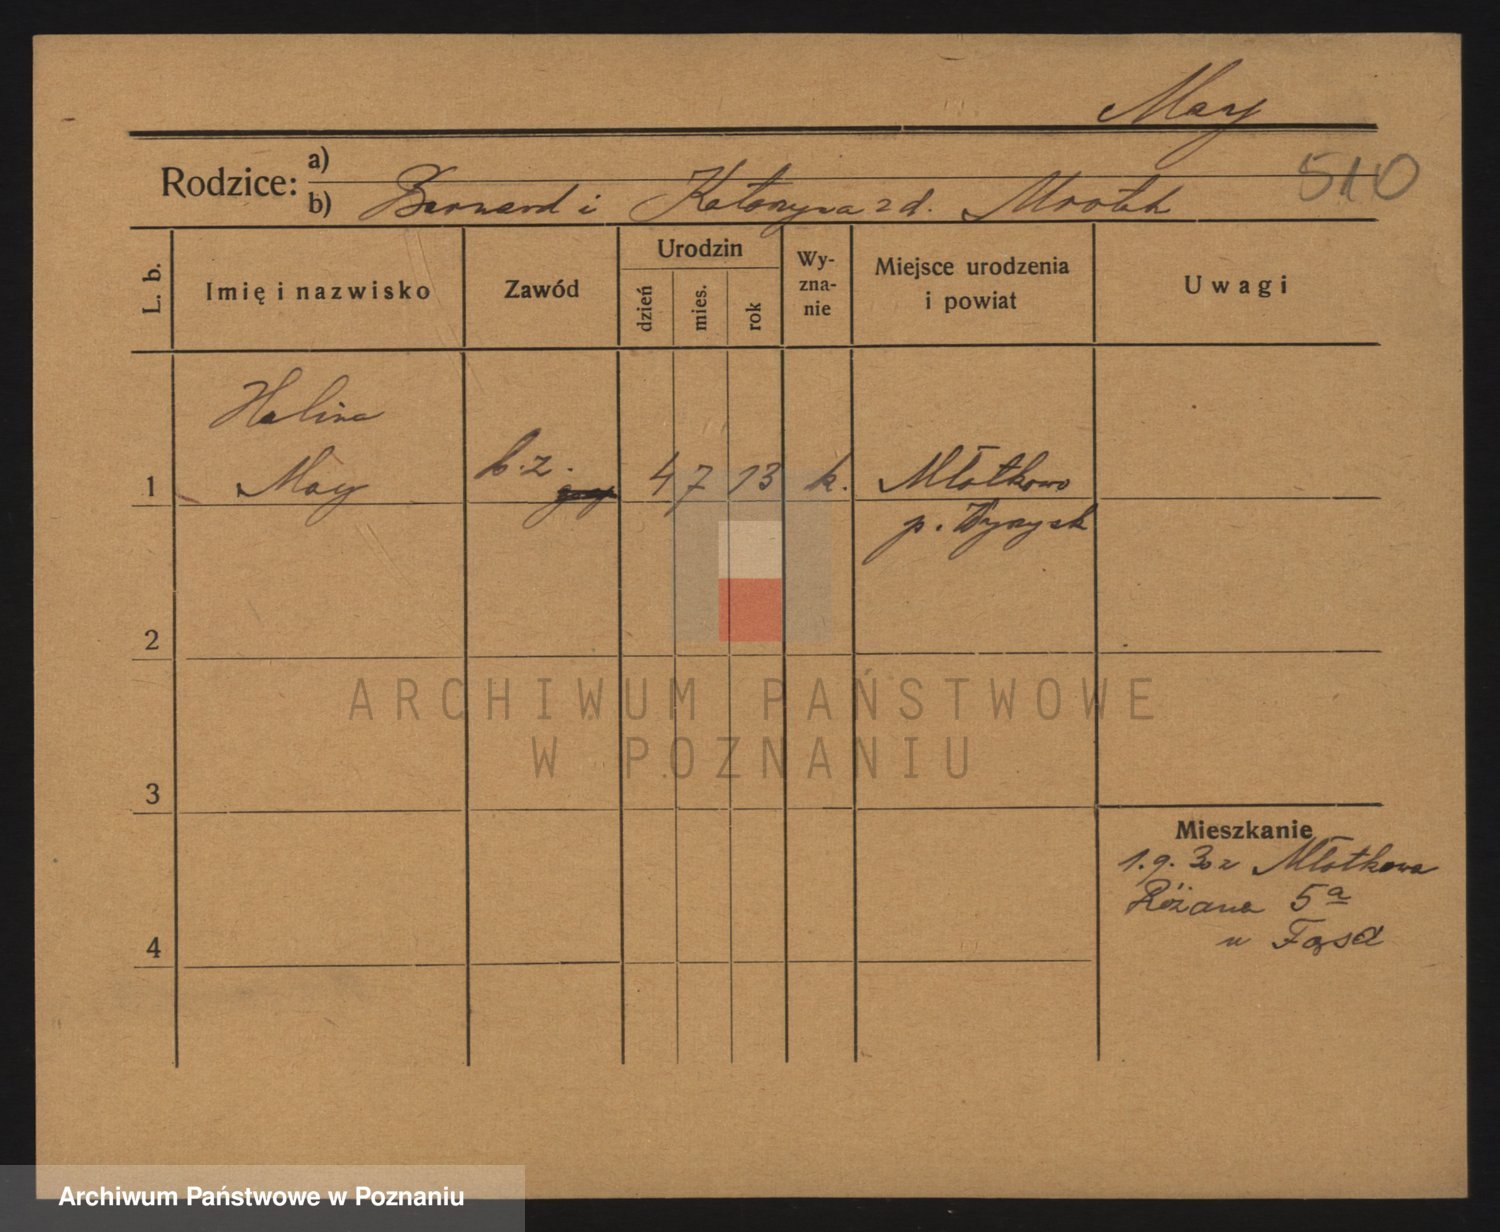 May
Rodzice: a)
510
b) Bernard i Katarzyna z d. Mrotek
L. b.
Imię i nazwisko
Zawód
Urodzin
dzień
mies.
rok
Wy-
zna-
nie
Miejsce urodzenia
i powiat
Uwagi
Halina
1 May b.z. 4 7 13 k. Młotkowo
p. Wyrzysk
2
ARCHIWUM PAŃSTWOWE
W POZNANIU
3
Mieszkanie
1.9.30 z Młotkowa
Różana 5a
4
u
Archiwum Państwowe w Poznaniu